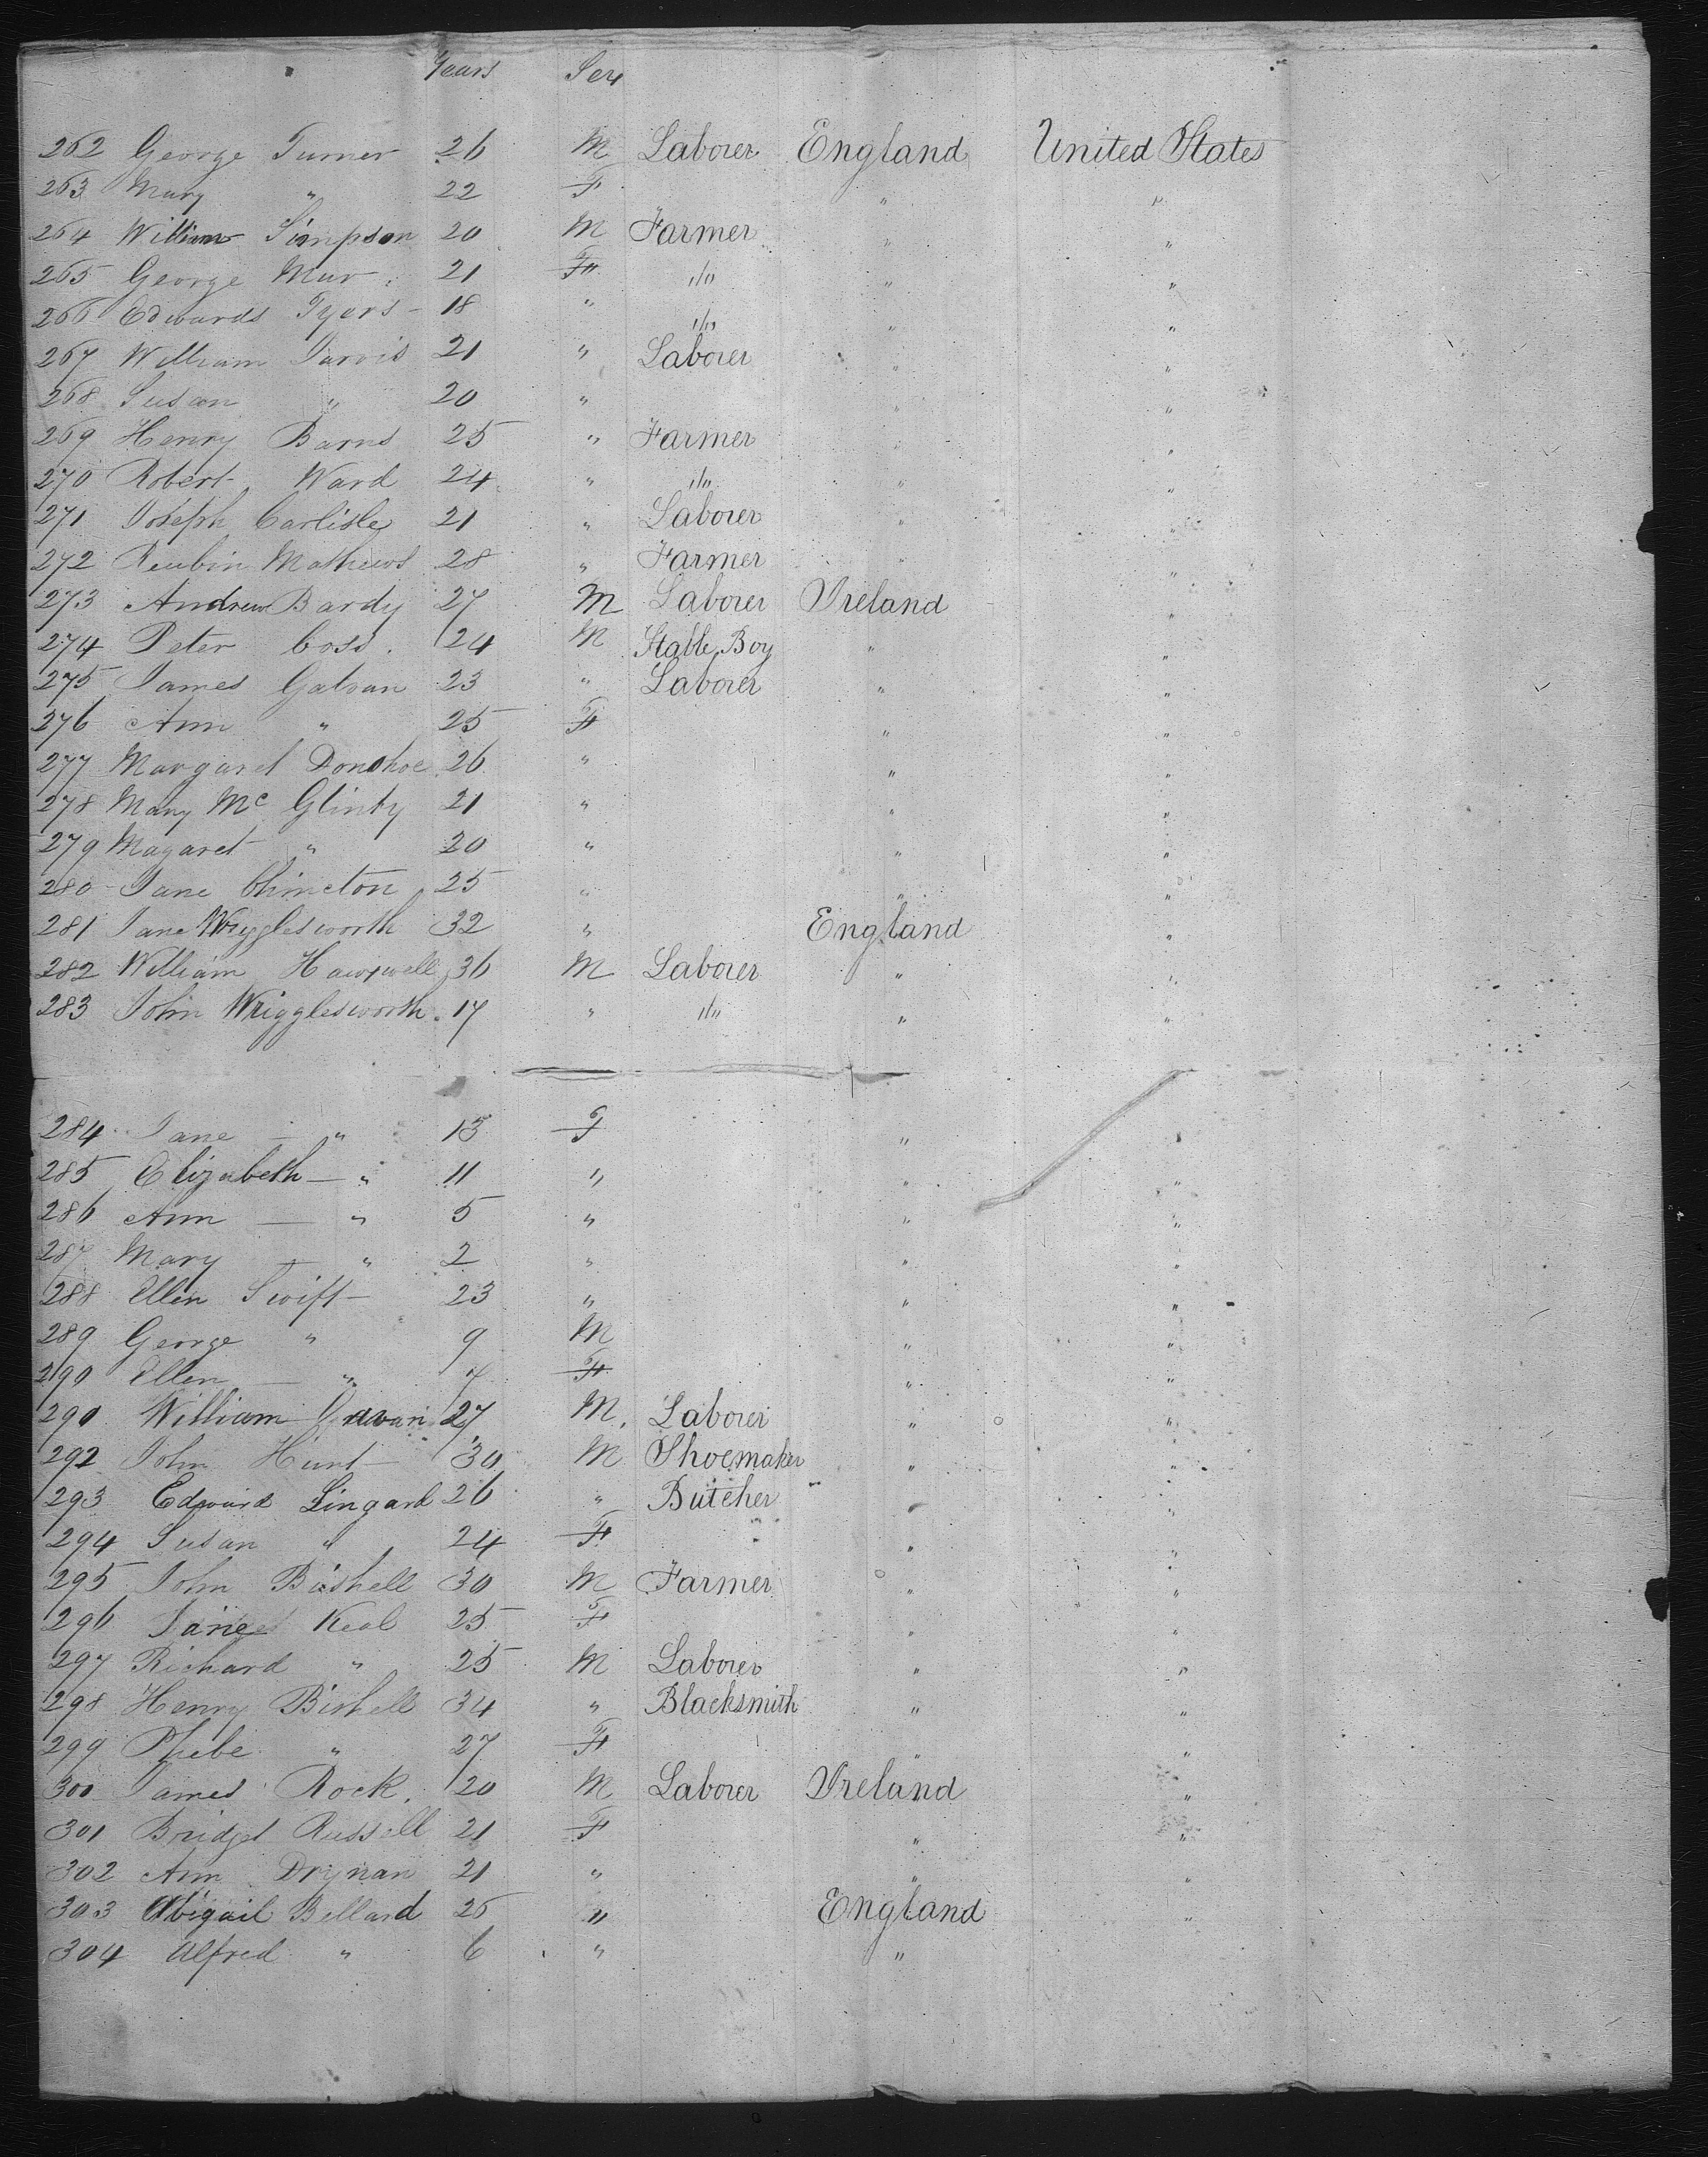 Years Sex
262 George Turner 26 M Laborer England United States
263 Mary " 22 F " "
264 William Simpson 20 M Farmer " "
265 George Mur 21 F" "/" " "
266 Edwards Tyers - 18 " "/" " "
267 William Jarvis 21 " Laborer " "
268 Susan " 20 " " "
269 Henry Barns 25 " Farmer " "
270 Robert Ward 24 " "/" " "
271 Joseph Carlisle 21 " Laborer " "
272 Reubin Mathews 28 " Farmer " "
273 Andrew Bardy 27 M Laborer Ireland "
274 Peter Coss. 24 M Stable Boy " "
275 James Galvan 23 " Laborer " "
276 Ann " 25 F " "
277 Margaret Donohoe 26 " " "
278 Mary Mc Glinty 21 " " "
279 Magaret " 20 " " "
280 Jane 25 " " "
281 Jane Wrigglesworth 32 " England "
282 William Hawxwell 36 M Laborer " "
283 John Wrigglesworth 17 " "/" " "
284 Jane — " 13 F " "
285 Elizabeth — " 11 " " "
286 Ann — " 5 " " "
287 Mary — " 2 " " "
288 Ellen Swift 23 " " "
289 George " 9 M " "
290 Ellen — " 7 F " "
290 William 27 M. Laborer " "
292 John Hunt 30 M Shoemaker " "
293 Edward Lingard 26 " Butcher " "
294 Susan " 24 F " "
295 John Bishell 30 M Farmer " "
296 Jane Keal 25 F " "
297 Richard " 25 M Laborer " "
298 Henry Bishell 34 " Blacksmith " "
299 Phebe " 27 F " "
300 James Rock. 20 M Laborer Ireland "
301 Bridget Russell 21 F " "
302 Ann Drynan 21 " " "
303 Abigail Bellard 25 " England "
304 Alfred " 6 " "